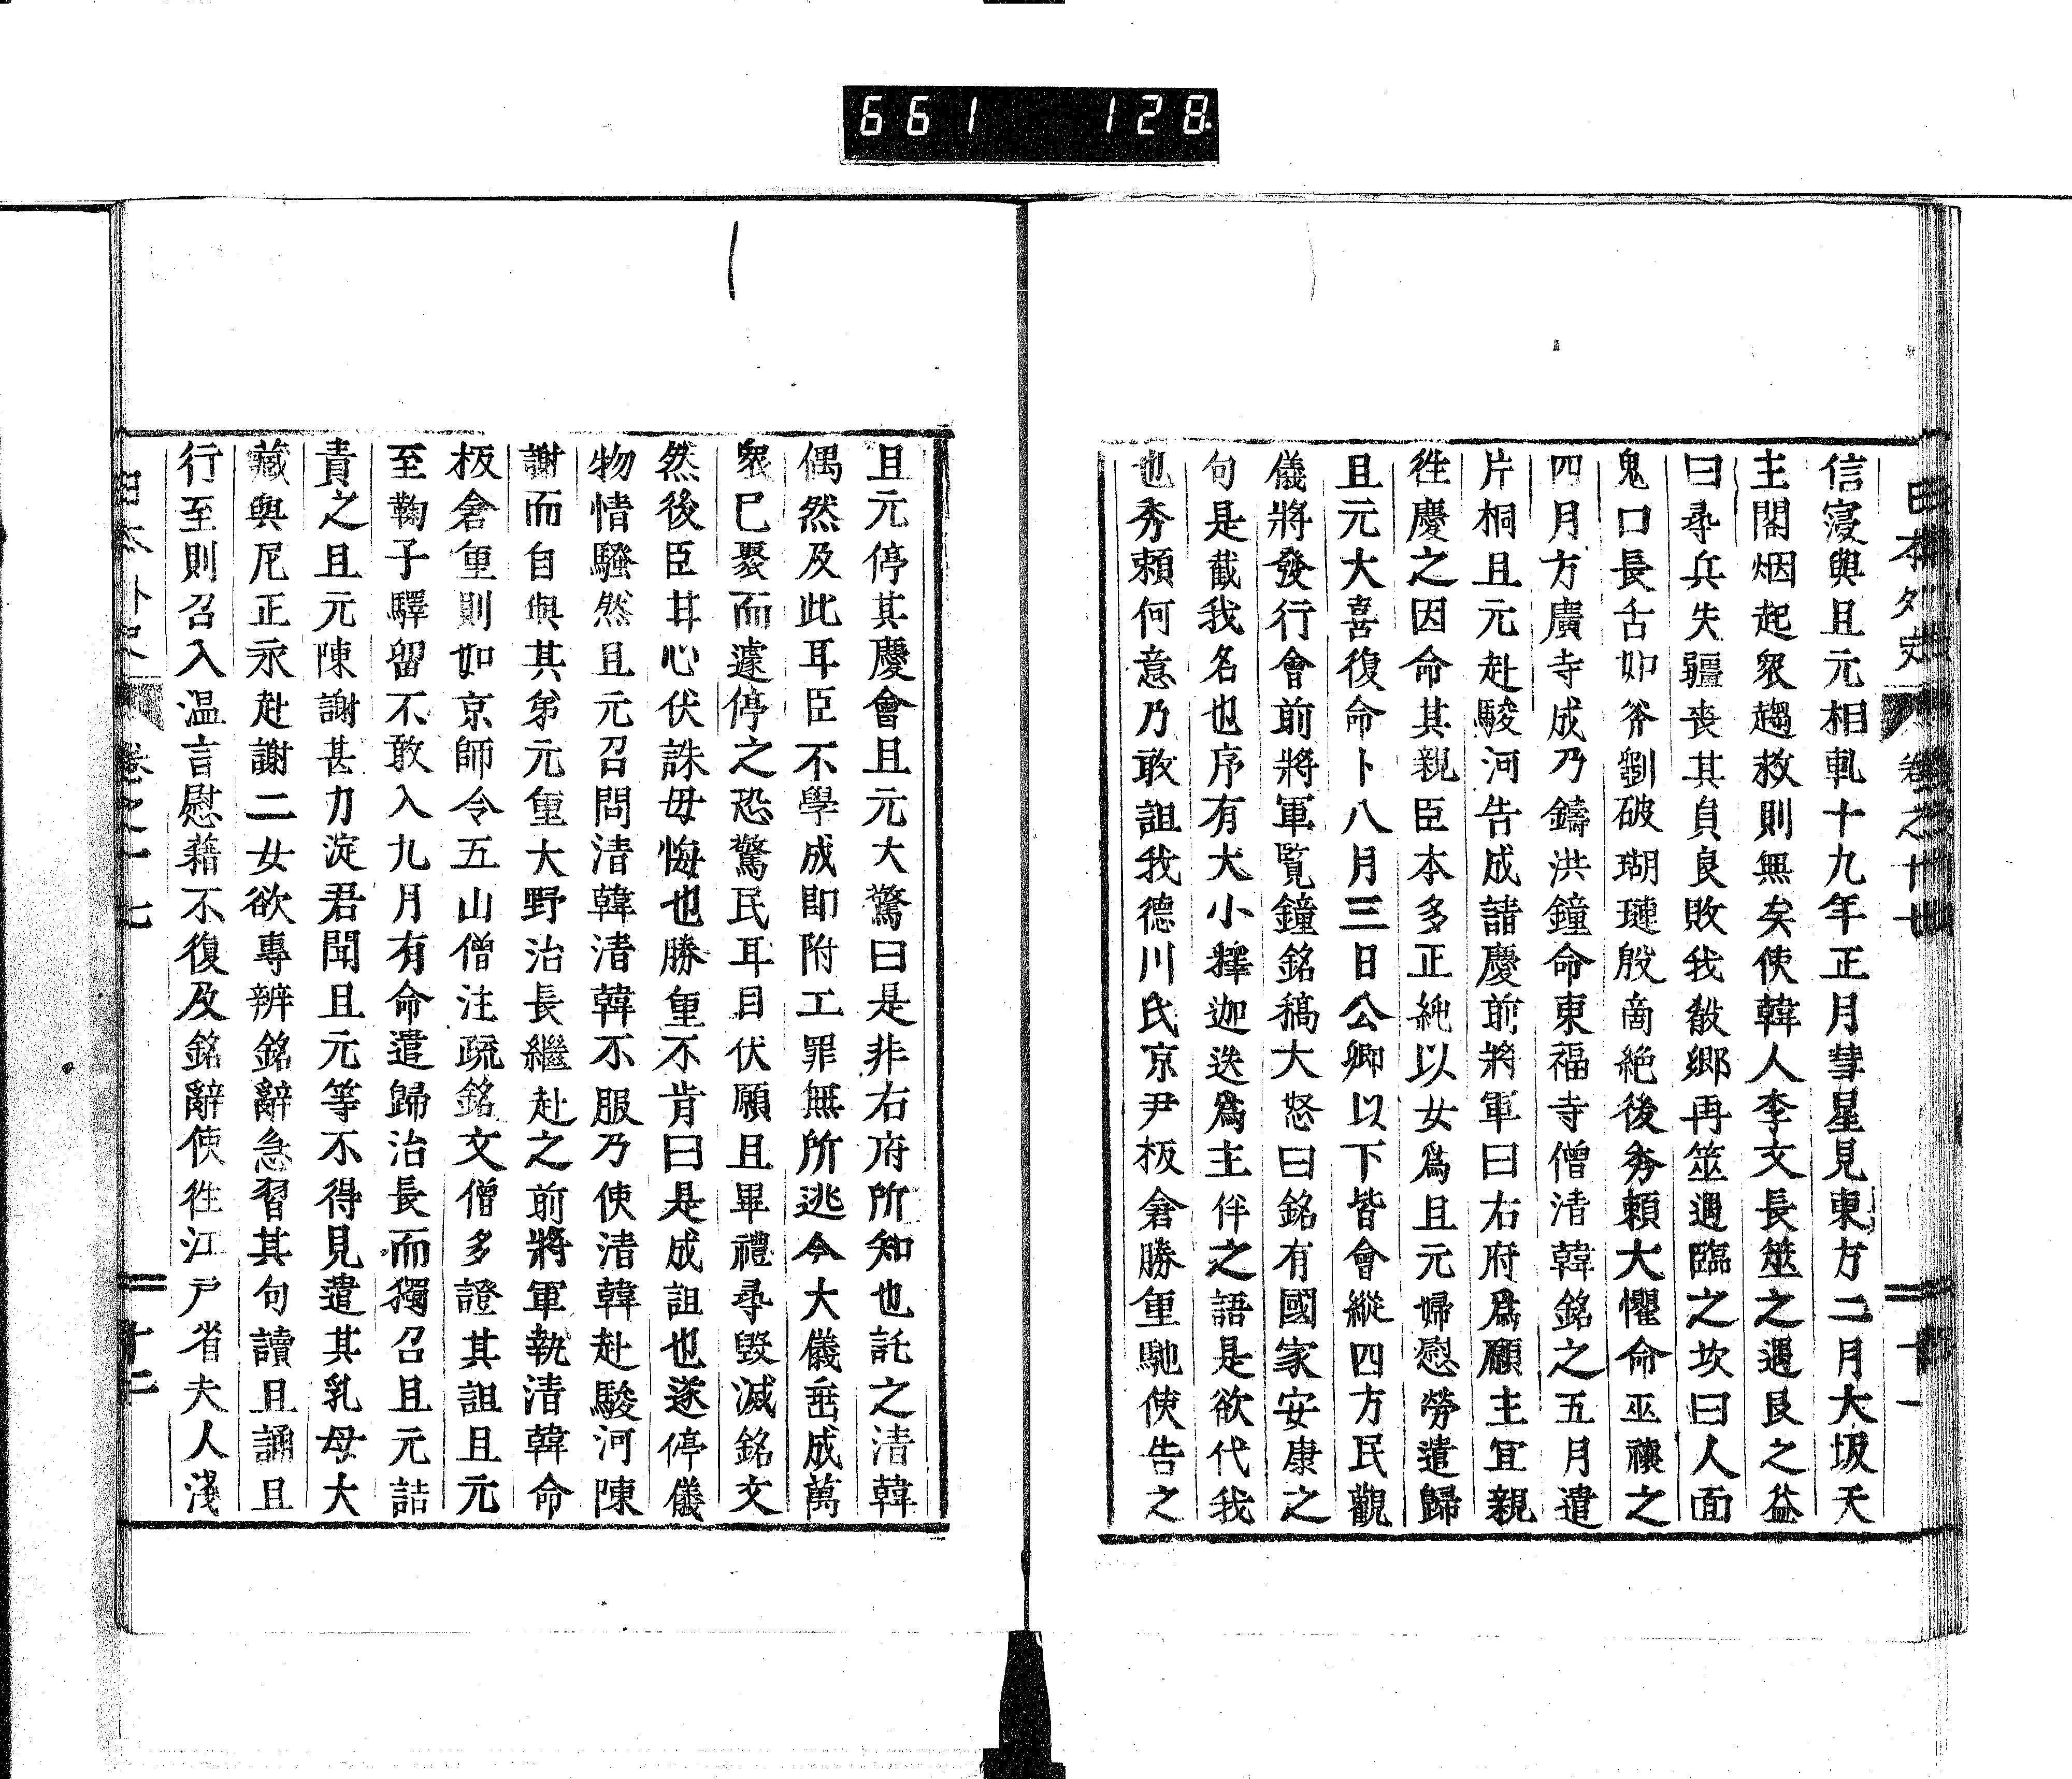 661 128
日本外史 卷之十七 十一
信寖與且元相軋十九年正月彗星見東方二月大坂天
主閣烟起衆趨救則無矣使韓人李文長筮之遇艮之益
曰尋兵失疆喪其貞良敗我殽鄉再筮遇臨之坎曰人面
鬼口長舌如斧劉破瑚璉殷商絕後秀賴大懼命巫禳之
四月方廣寺成乃鑄洪鐘命東福寺僧清韓銘之五月遣
片桐且元赴駿河告成諸慶前將軍曰右府爲願主宜親
徃慶之因命其親臣本多正純以女爲且元婦慰勞遣歸
且元大喜復命卜八月三日公卿以下皆會縱四方民觀
儀將發行會前將軍覽鐘銘稿大怒曰銘有國家安康之
句是截我名也序有大小釋迦迭爲主伴之語是欲代我
也秀賴何意乃敢詛我德川氏京尹板倉勝重馳使告之
且元停其慶會且元大驚曰是非右府所知也託之清韓
偶然及此耳臣不學成即附工罪無所逃今大儀垂成萬
衆已聚而遽停之恐驚民耳目伏願且畢禮尋毀滅銘文
然後臣甘心伏誅毋悔也勝重不肯曰是成詛也遂停儀
物情騷然且元召問清韓清韓不服乃使清韓赴駿河陳
謝而自與其弟元重大野治長繼赴之前將軍執清韓命
板倉重則如京師令五山僧注疏銘文僧多證其詛且元
至鞠子驛留不敢入九月有命遣歸治長而獨召且元詰
責之且元陳謝甚力淀君聞且元等不得見遣其乳母大
藏與尼正永赴謝二女欲專辨銘辭急習其句讀且誦且
行至則召入溫言慰藉不復及銘辭使徃江戶省夫人淺
日本外史 卷之十七 十二